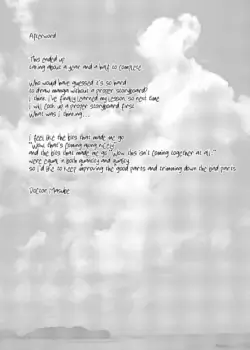 Afterword
This ended up
taking about a year and a half to complete.
Who would have guessed it's so hard
to draw manga without a proper storyboard?
I think I've finally learned my lesson, so next time
I will cook up a proper storyboard first.
What was I thinking...
I feel like the bits that made me go
"Wow, that's coming along nicely"
and the bits that made me go "Wow, this isn't coming together at all."
were equal in both quantity and quality
so I'd like to keep improving the good parts and trimming down the bad parts.
Doctor